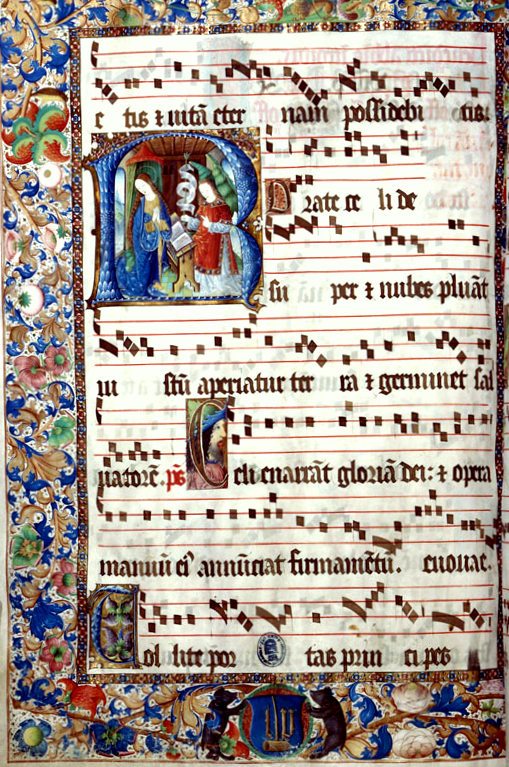 e tis ⁊ uitā eter nam possidebi tis.
Rorate ce li de
su per ⁊ nubes pluāt
iu stū aperiatur ter ra ⁊ germinet sal
uatorē. p̄s Celi enarrāt gloriā dei: ⁊ opera
manuū ei᾽ annūciat firmamētū. euouae.
Tol lite por tas prin ci pes